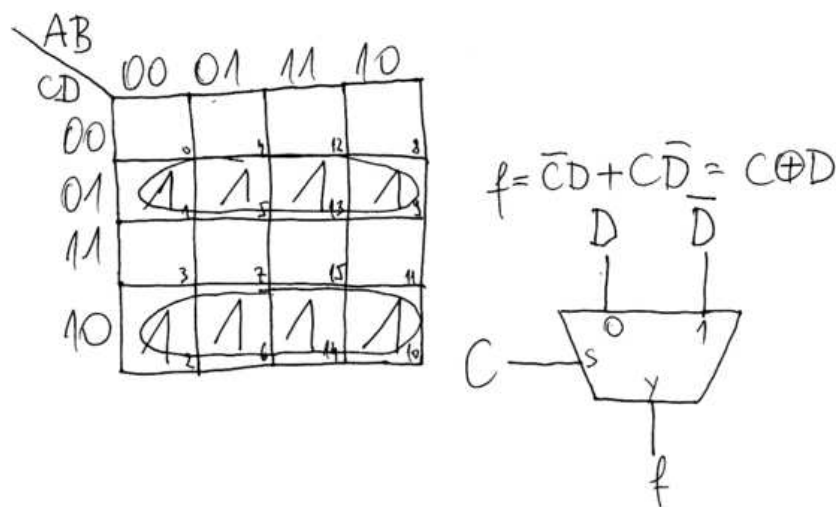 AB
CD 00 01 11 10
00 0 4 12 8
01 1 1 1 5 1 13 1 9
11 3 7 15 11
10 1 2 1 6 1 14 1 10
f = C̅D + CD̅ = C⊕D
D D̅
0 1
C S
Y
f